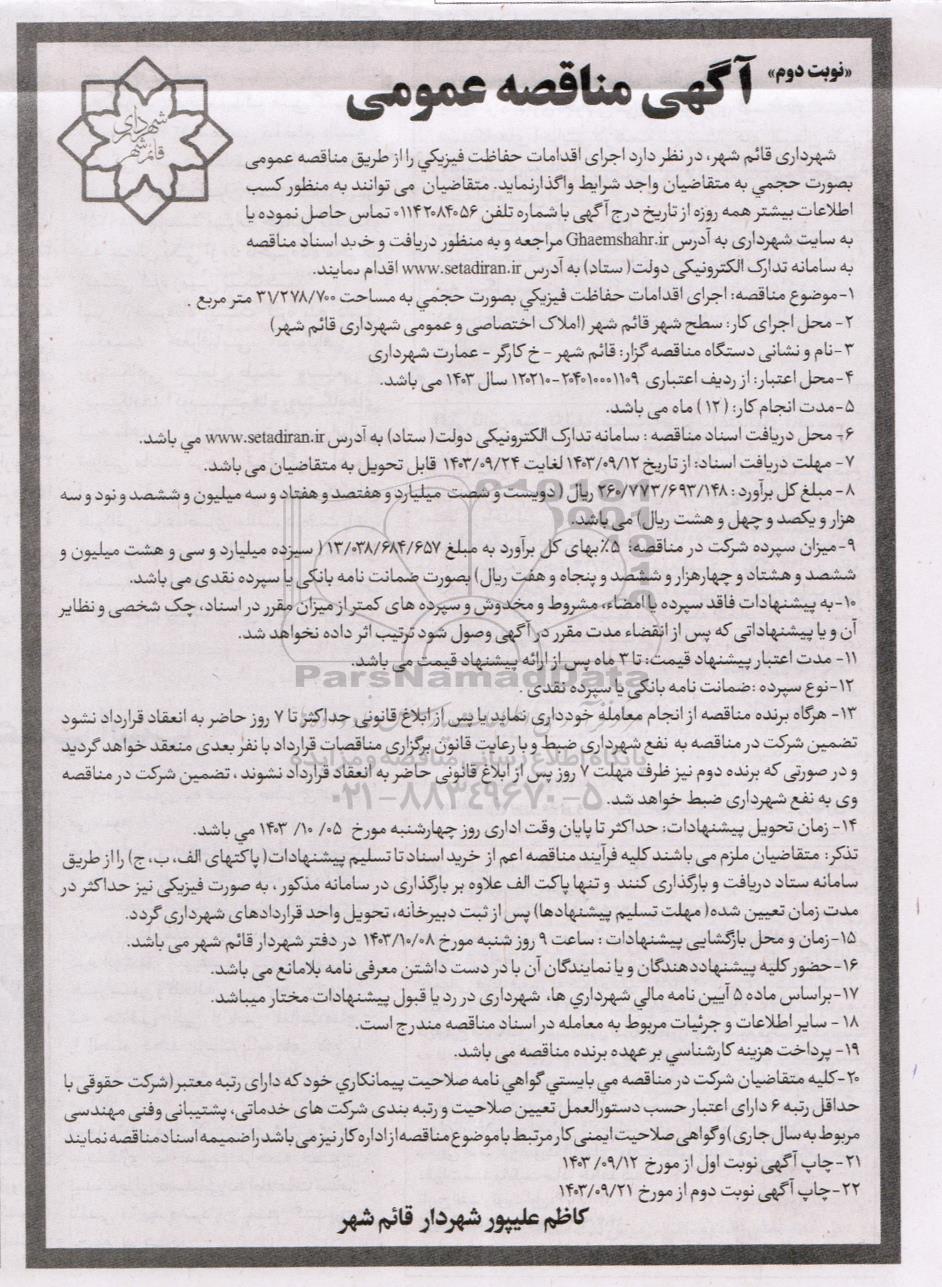 «نوبت دوم»
آگهی مناقصه عمومی
شهرداری قائم شهر
شهرداری قائم شهر، در نظر دارد اجرای اقدامات حفاظت فیزیکي را از طریق مناقصه عمومی
بصورت حجمي به متقاضیان واجد شرایط واگذارنماید. متقاضیان می توانند به منظور کسب
اطلاعات بیشتر همه روزه از تاریخ درج آگهی با شماره تلفن ۰۱۱۴۲۰۸۴۰۵۶ تماس حاصل نموده یا
به سایت شهرداری به آدرس Ghaemshahr.ir مراجعه و به منظور دریافت و خرید اسناد مناقصه
به سامانه تدارک الکترونیکی دولت( ستاد) به آدرس www.setadiran.ir اقدام نمایند.
۱-موضوع مناقصه: اجرای اقدامات حفاظت فیزیکي بصورت حجمي به مساحت ۳۱/۲۷۸/۷۰۰ متر مربع .
۲- محل اجرای کار: سطح شهر قائم شهر (املاک اختصاصی و عمومی شهرداری قائم شهر)
۳-نام و نشانی دستگاه مناقصه گزار: قائم شهر - خ کارگر - عمارت شهرداری
۴-محل اعتبار: از ردیف اعتباری ۲۰۴۰۱۰۰۰۱۱۰۹-۱۲۰۲۱۰ سال ۱۴۰۳ می باشد.
۵-مدت انجام کار: (۱۲) ماه می باشد.
۶- محل دریافت اسناد مناقصه : سامانه تدارک الکترونیکی دولت( ستاد) به آدرس www.setadiran.ir مي باشد.
۷- مهلت دریافت اسناد: از تاریخ ۱۴۰۳/۰۹/۱۲ لغایت ۱۴۰۳/۰۹/۲۴ قابل تحویل به متقاضیان می باشد.
۸- مبلغ کل برآورد : ۲۶۰/۷۷۳/۶۹۳/۱۴۸ ریال ( دویست و شصت میلیارد و هفتصد و هفتاد و سه میلیون و ششصد و نود و سه
هزار و یکصد و چهل و هشت ریال) می باشد.
۹-میزان سپرده شرکت در مناقصه: ۵٪ بهای کل برآورد به مبلغ ۱۳/۰۳۸/۶۸۴/۶۵۷ ( سیزده میلیارد و سی و هشت میلیون و
ششصد و هشتاد و چهارهزار و ششصد و پنجاه و هفت ریال) بصورت ضمانت نامه بانکی یا سپرده نقدی می باشد.
۱۰-به پیشنهادات فاقد سپرده یا امضاء، مشروط و مخدوش و سپرده های کمتر از میزان مقرر در اسناد، چک شخصی و نظایر
آن و یا پیشنهاداتی که پس از انقضاء مدت مقرر در آگهی وصول شود ترتیب اثر داده نخواهد شد.
۱۱- مدت اعتبار پیشنهاد قیمت: تا ۳ ماه پس از ارائه پیشنهاد قیمت می باشد.
ParsNamadData
۱۲-نوع سپرده :ضمانت نامه بانکی یا سپرده نقدی .
۱۳- هرگاه برنده مناقصه از انجام معامله خودداری نماید یا پس از ابلاغ قانونی حداکثر تا ۷ روز حاضر به انعقاد قرارداد نشود
تضمین شرکت در مناقصه به نفع شهرداری ضبط و با رعایت قانون برگزاری مناقصات قرارداد با نفر بعدی منعقد خواهد گردید
پایگاه اطلاع رسانی مناقصه و مزایده
و در صورتی که برنده دوم نیز ظرف مهلت ۷ روز پس از ابلاغ قانونی حاضر به انعقاد قرارداد نشوند ، تضمین شرکت در مناقصه
۰۲۱-۸۸۳۴۹۶۷۰-۵
وی به نفع شهرداری ضبط خواهد شد.
۱۴- زمان تحویل پیشنهادات: حداکثر تا پایان وقت اداری روز چهارشنبه مورخ ۰۵ /۱۰ /۱۴۰۳ مي باشد.
تذکر: متقاضیان ملزم می باشند کلیه فرآیند مناقصه اعم از خرید اسناد تا تسلیم پیشنهادات( پاکتهای الف، ب، ج) را از طریق
سامانه ستاد دریافت و بارگذاری کنند و تنها پاکت الف علاوه بر بارگذاری در سامانه مذکور ، به صورت فیزیکی نیز حداکثر در
مدت زمان تعیین شده( مهلت تسلیم پیشنهادها) پس از ثبت دبیرخانه، تحویل واحد قراردادهای شهرداری گردد.
۱۵-زمان و محل بازگشایی پیشنهادات : ساعت ۹ روز شنبه مورخ ۱۴۰۳/۱۰/۰۸ در دفتر شهردار قائم شهر می باشد.
۱۶-حضور کلیه پیشنهاددهندگان و یا نمایندگان آن با در دست داشتن معرفی نامه بلامانع می باشد.
۱۷-براساس ماده ۵ آیین نامه مالي شهرداري ها، شهرداری در رد یا قبول پیشنهادات مختار میباشد.
۱۸- سایر اطلاعات و جزئیات مربوط به معامله در اسناد مناقصه مندرج است.
۱۹- پرداخت هزینه کارشناسي بر عهده برنده مناقصه می باشد.
۲۰-کلیه متقاضیان شرکت در مناقصه می بایستي گواهي نامه صلاحیت پیمانکاري خود که دارای رتبه معتبر(شرکت حقوقی با
حداقل رتبه ۶ دارای اعتبار حسب دستورالعمل تعیین صلاحیت و رتبه بندی شرکت های خدماتی، پشتیبانی وفنی مهندسی
مربوط به سال جاری) و گواهی صلاحیت ایمنی کار مرتبط با موضوع مناقصه از اداره کار نیز می باشد را ضمیمه اسناد مناقصه نمایند
۲۱-چاپ آگهی نوبت اول از مورخ ۱۴۰۳/۰۹/۱۲
۲۲-چاپ آگهی نوبت دوم از مورخ ۱۴۰۳/۰۹/۲۱
کاظم علیپور شهردار قائم شهر